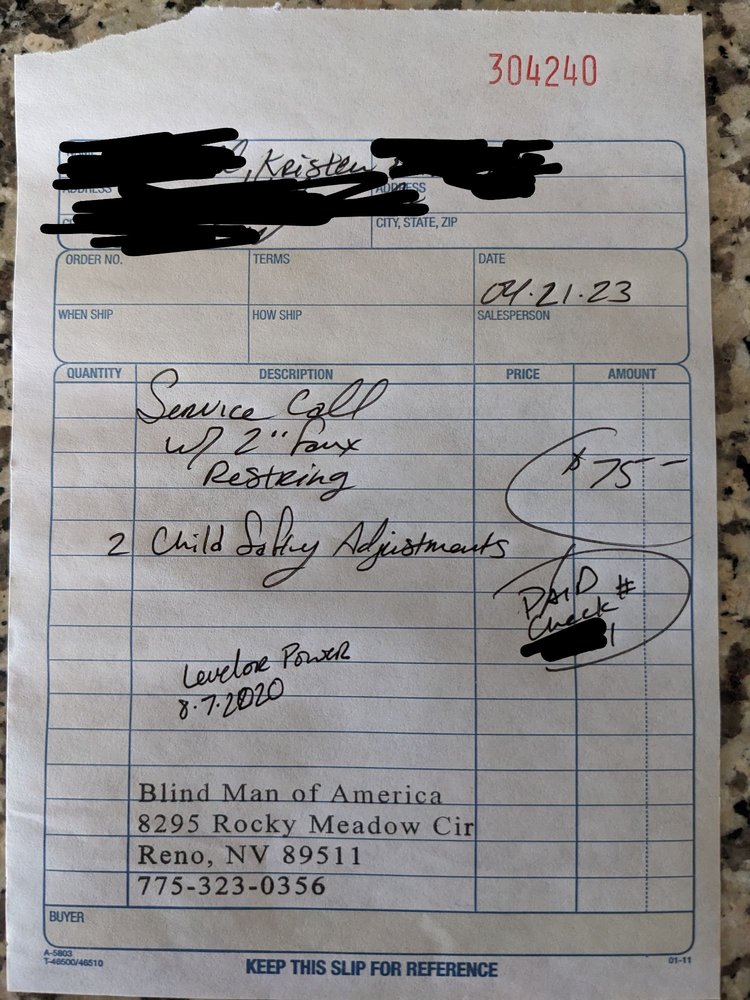 304240
, Kristen
ADDRESS ADDRESS
CITY, STATE, ZIP
ORDER NO. TERMS DATE
04.21.23
WHEN SHIP HOW SHIP SALESPERSON
QUANTITY DESCRIPTION PRICE AMOUNT
Service Call
w/ 2" faux
Restring
$75-
2 Child Safety Adjustments
PAID
Check #
1
Levelor Power
8.7.2020
Blind Man of America
8295 Rocky Meadow Cir
Reno, NV 89511
775-323-0356
BUYER
A-5803
T-46500/46510
KEEP THIS SLIP FOR REFERENCE
01-11